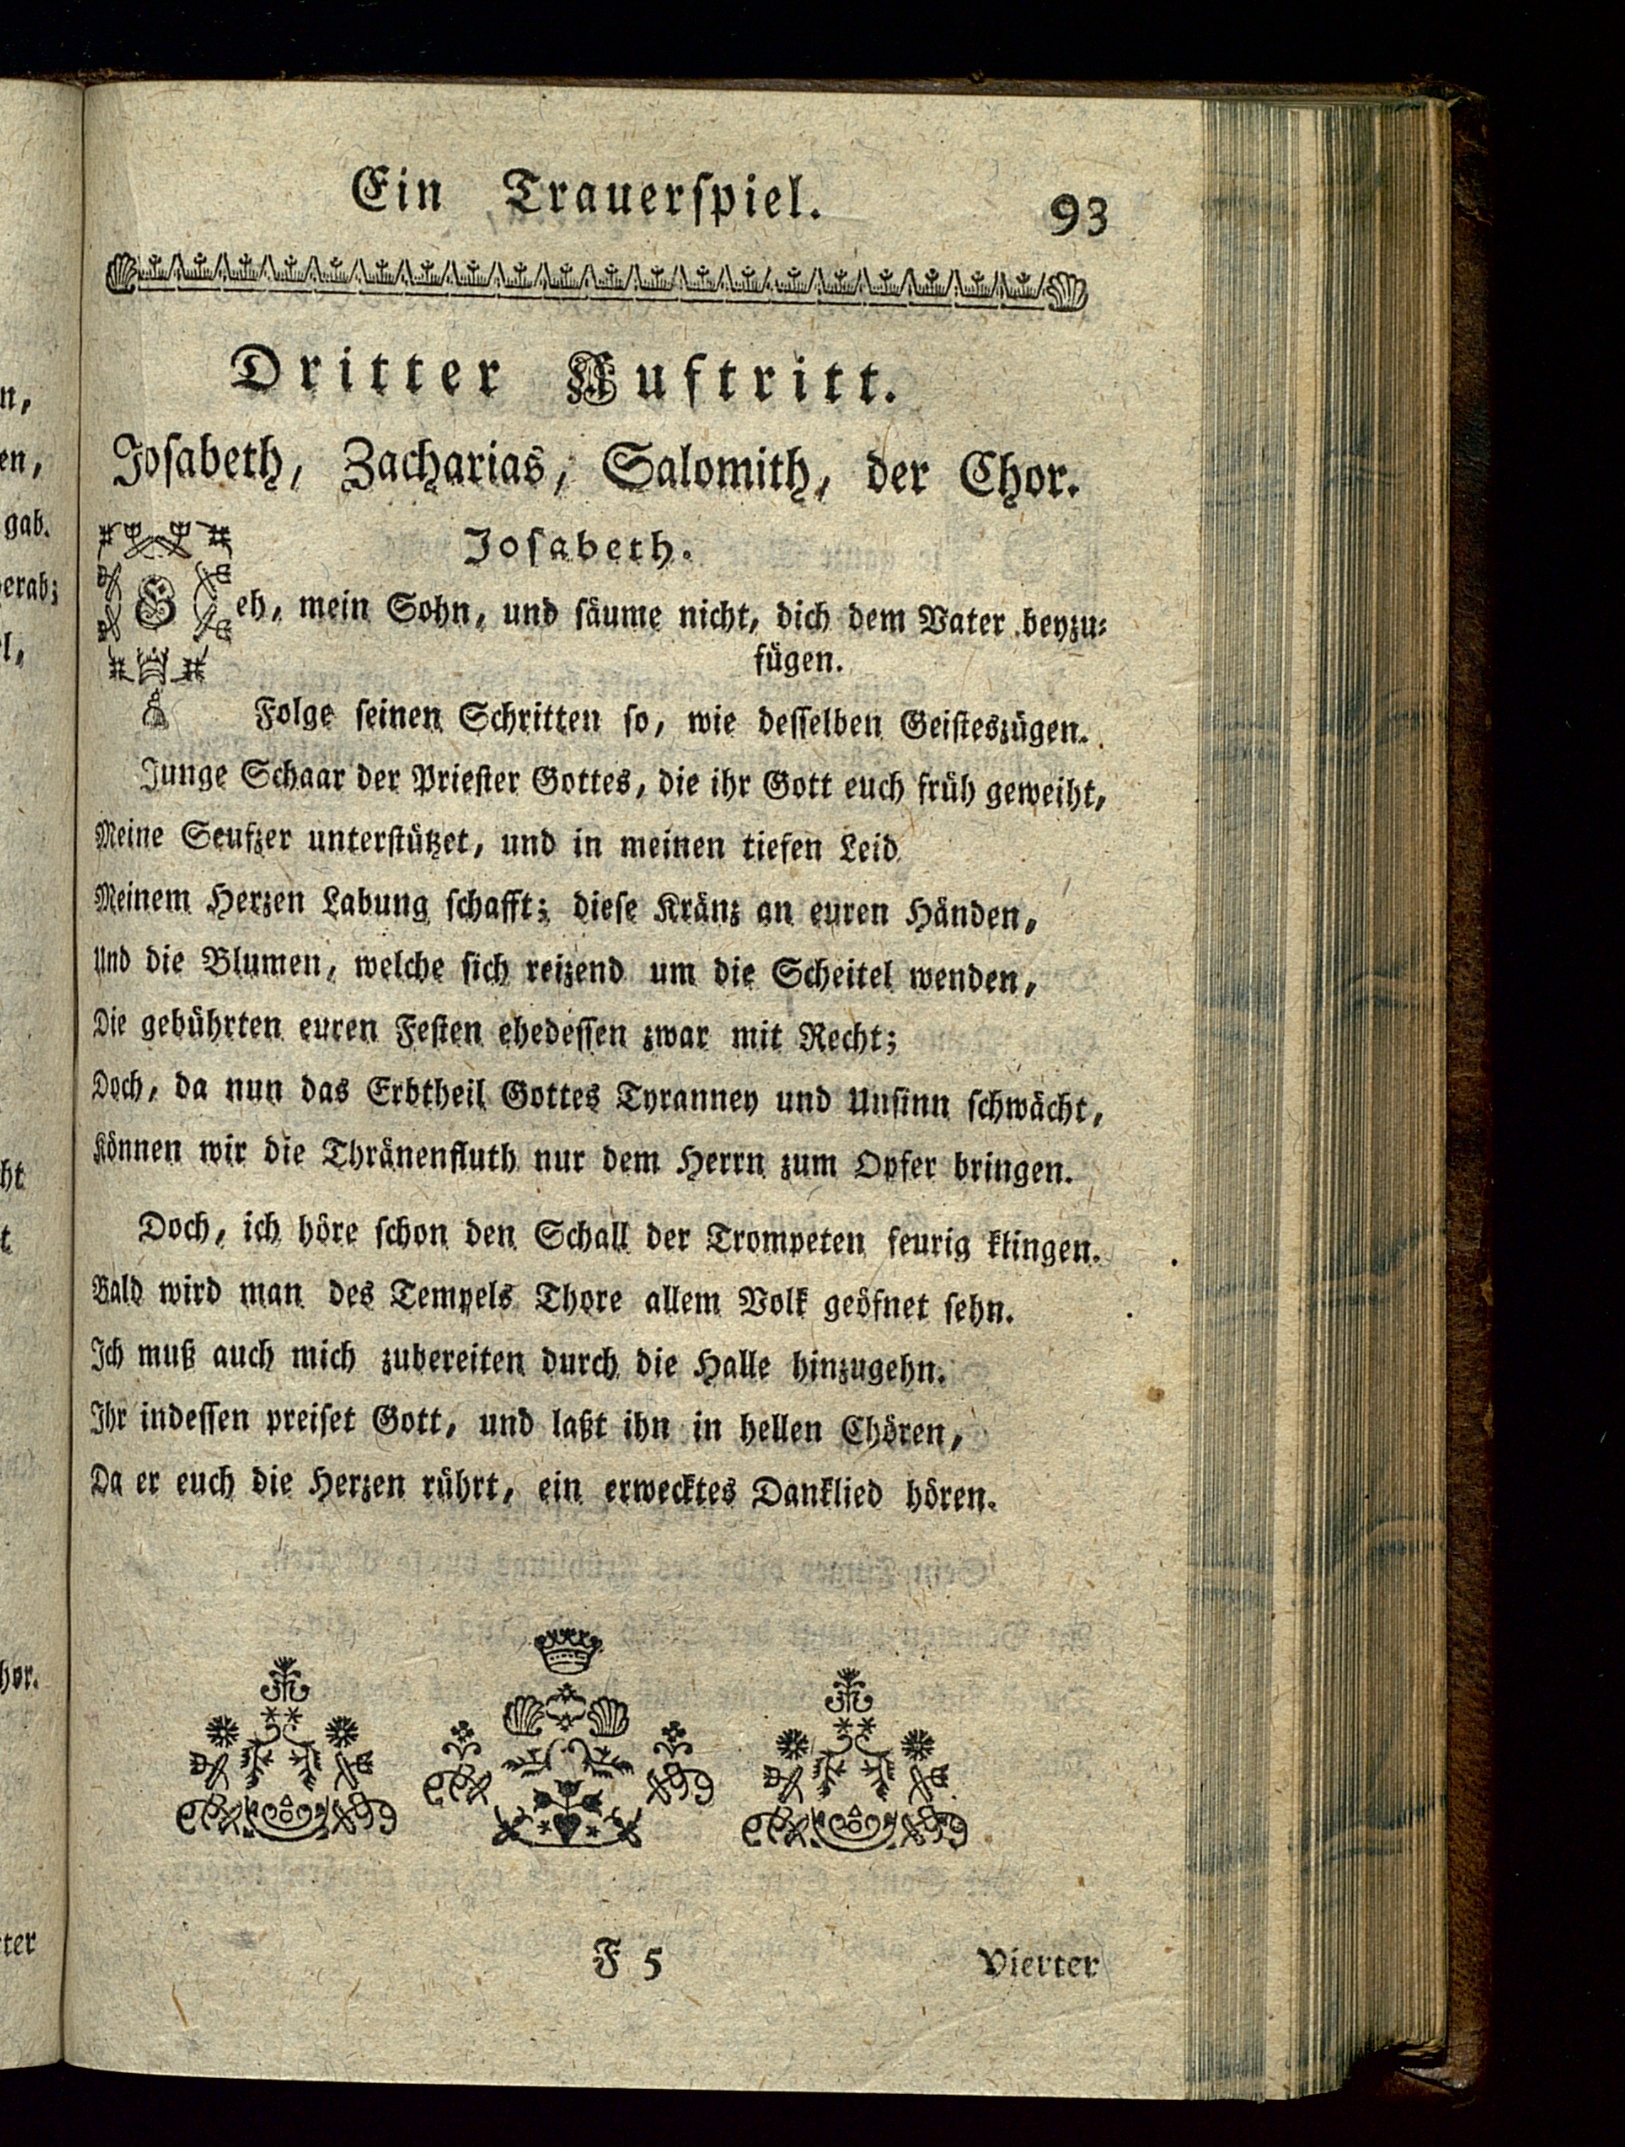 Ein Trauerſpiel. 93
Dritter Auftritt.
Joſabeth, Zacharias, Salomith, der Chor.
Joſabeth.
Geh, mein Sohn, und ſäume nicht, dich dem Vater beyzu⸗
fügen.
Folge ſeinen Schritten ſo, wie deſſelben Geiſteszügen.
Junge Schaar der Prieſter Gottes, die ihr Gott euch früh geweiht,
Meine Seufzer unterſtützet, und in meinen tiefen Leid
Meinem Herzen Labung ſchafft; dieſe Kränz an euren Händen,
Und die Blumen, welche ſich reizend um die Scheitel wenden,
Die gebührten euren Feſten ehedeſſen zwar mit Recht;
Doch, da nun das Erbtheil Gottes Tyranney und Unſinn ſchwächt,
Können wir die Thränenfluth nur dem Herrn zum Opfer bringen.
Doch, ich höre ſchon den Schall der Trompeten feurig klingen.
Bald wird man des Tempels Thore allem Volk geöfnet ſehn.
Ich muß auch mich zubereiten durch die Halle hinzugehn.
Ihr indeſſen preiſet Gott, und laßt ihn in hellen Chören,
Da er euch die Herzen rührt, ein erwecktes Danklied hören.
F 5 Vierter